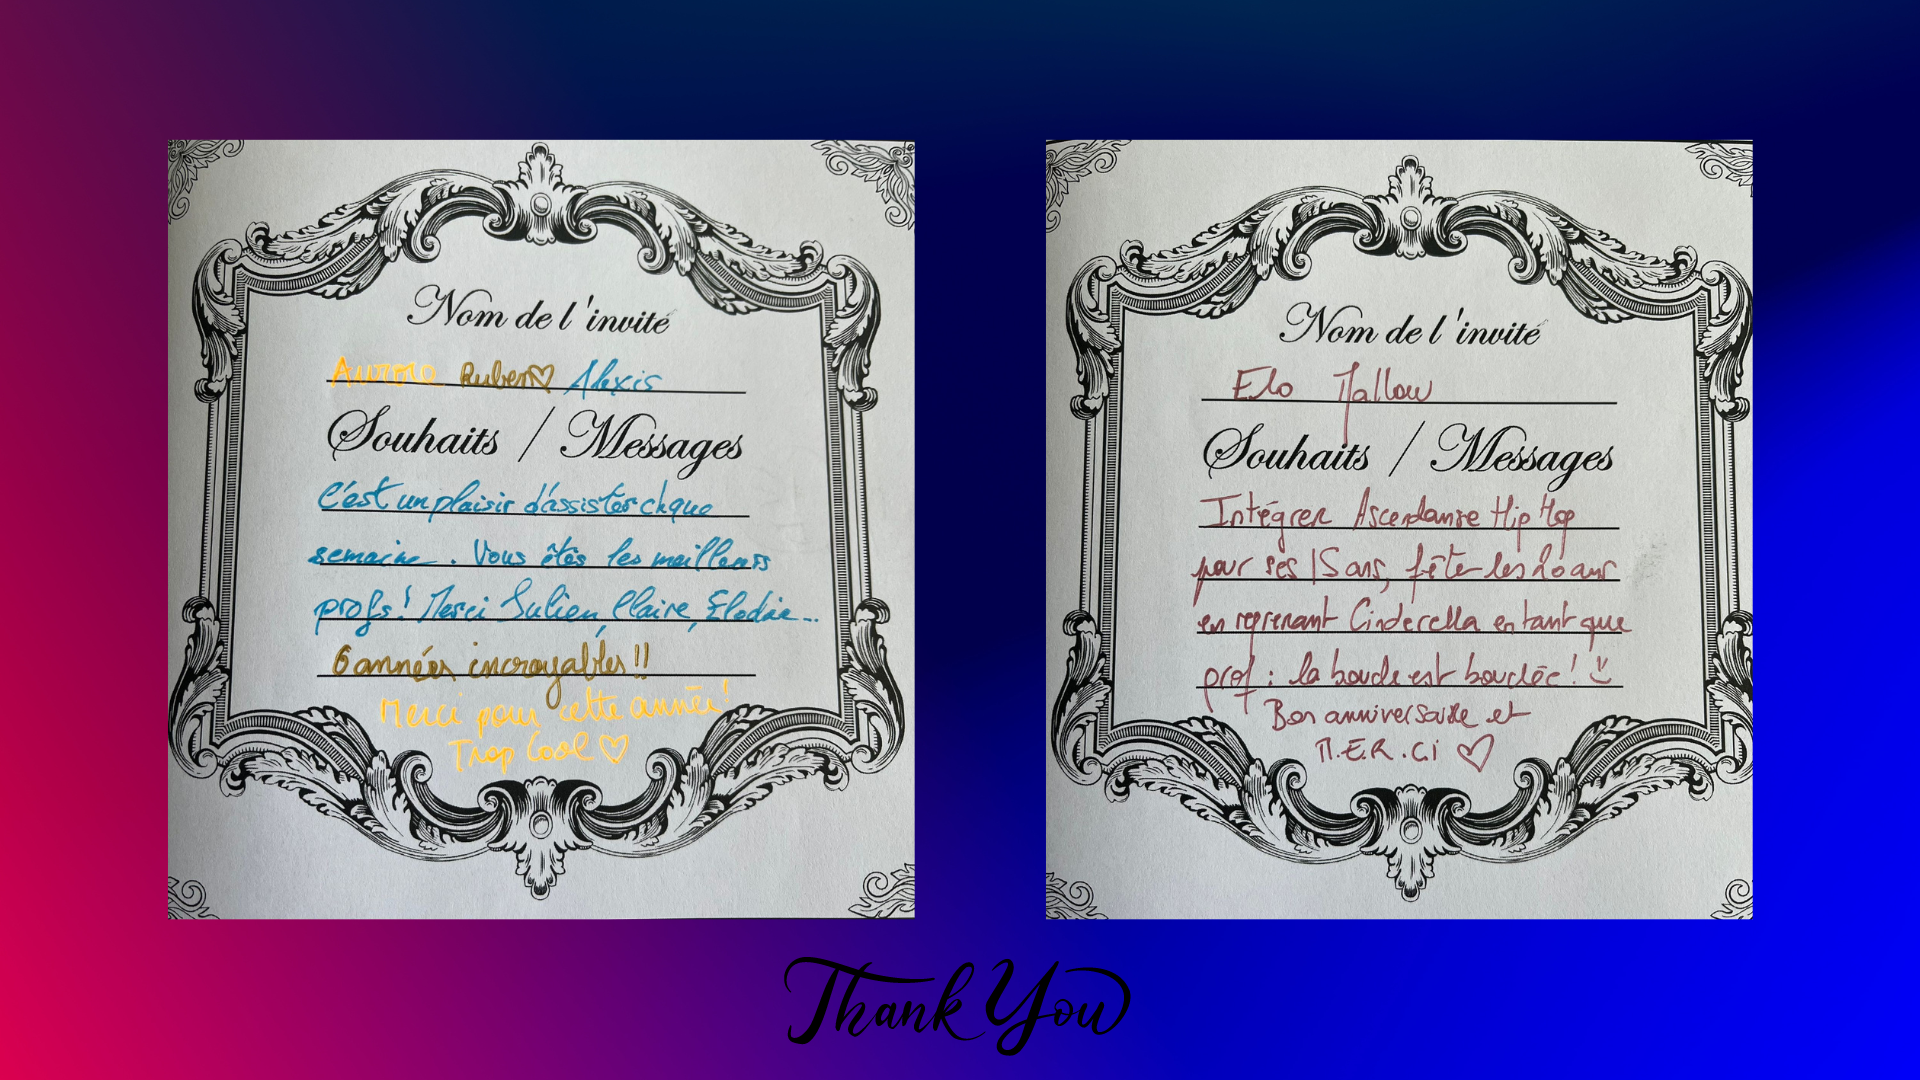 Nom de l'invité
Aurore Ruben Alexis
Souhaits / Messages
C'est un plaisir d'assister chque
semaine. Vous êtes les meilleurs
profs! Merci Julien, Claire, Elodie...
6 années incroyables!!
Merci pour cette année!
Trop Cool ♡
Nom de l'invité
Elo Mallow
Souhaits / Messages
Intégrer Ascendanse Hip Hop
pour ses 15 ans, fêter les 20 ans
en reprenant Cinderella en tant que
prof : la boucle est bouclée!
Bon anniversaire et
M.E.R.CI ♡
Thank You